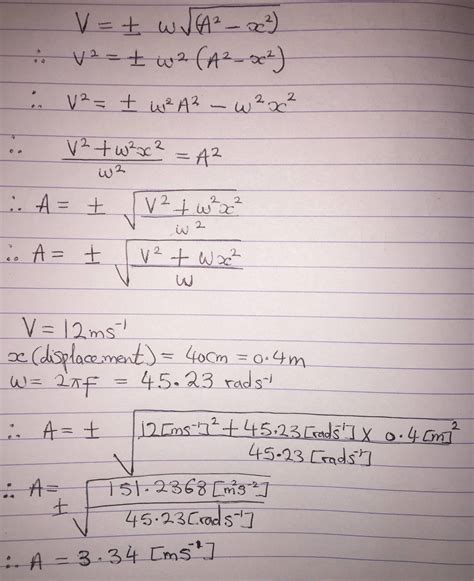 V = ± ω√(A² − x²)
∴ V² = ± ω² (A² − x²)
∴ V² = ± ω²A² − ω²x²
∴ V² + ω²x² / ω² = A²
∴ A = ± √(V² + ω²x² / ω²)
∴ A = ± √(V² + ωx² / ω)
V = 12ms⁻¹
x (displacement) = 40cm = 0.4m
ω = 2πf = 45.23 rads⁻¹
∴ A = ± √(12[ms⁻¹]² + 45.23[rads⁻¹] × 0.4[m]² / 45.23[rads⁻¹])
∴ A = ± √(151.2368 [m²s⁻²] / 45.23[rads⁻¹])
∴ A = 3.34 [ms⁻¹]